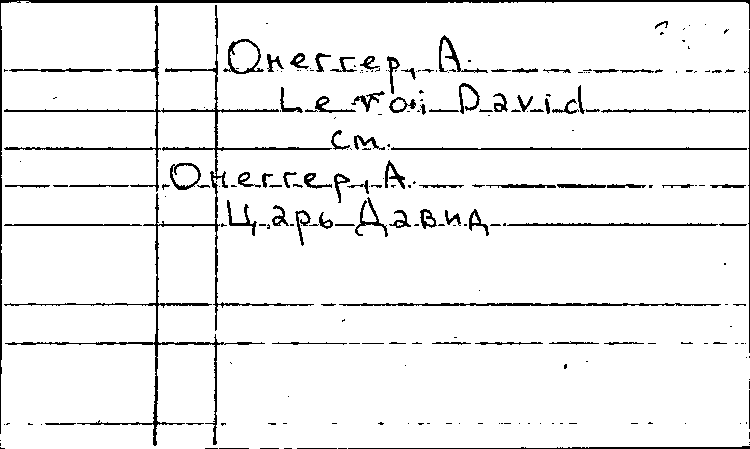 Онеггер, А.
Le roi David
см.
Онеггер, А.
Царь Давид